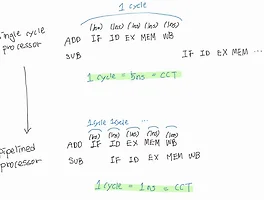 1 cycle
single cycle
processor
(1ns) (1ns) (1ns) (1ns) (1ns)
ADD IF ID EX MEM WB
SUB IF ID EX MEM ...
1 cycle = 5ns = CCT
1 cycle 1 cycle ...
(1ns) (1ns) (1ns) (1ns) (1ns)
pipelined
processor
ADD IF ID EX MEM WB
SUB IF ID EX MEM WB
1 cycle = 1ns = CCT